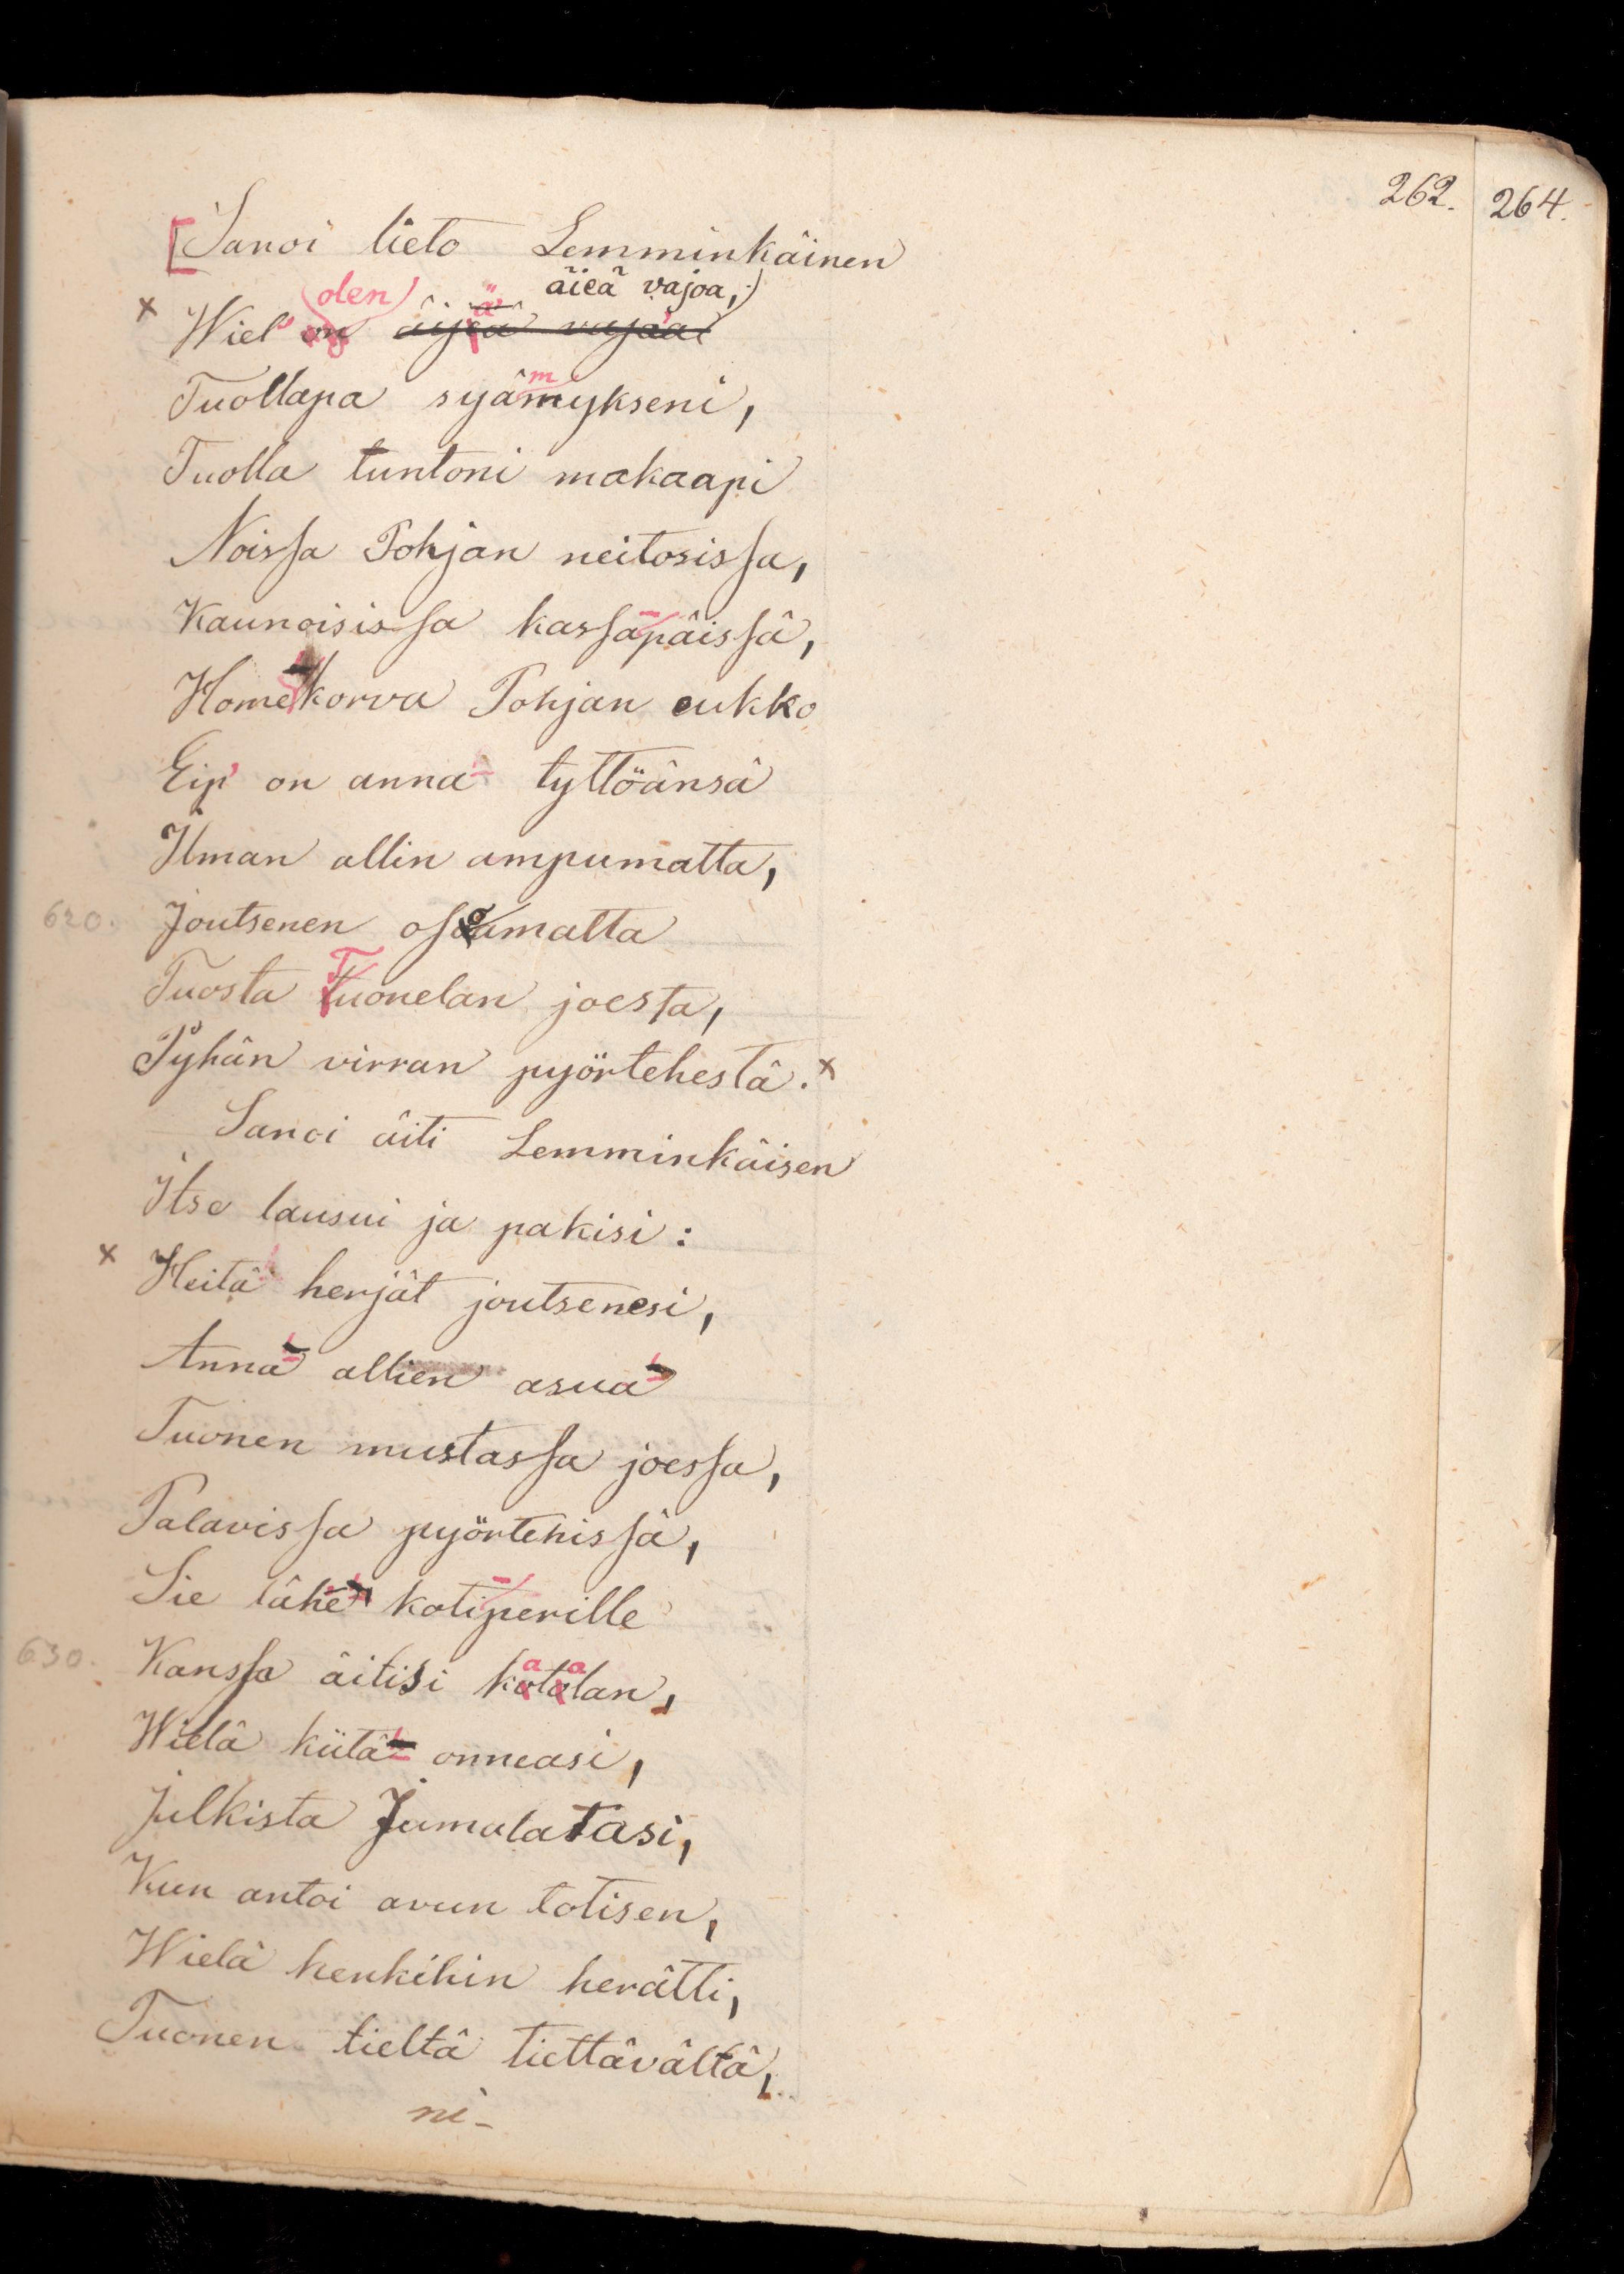 262. 264.
[Sanoi lieto Lemminkäinen
olen ä äieä vajoa,
x Wiel' on äijeä vajaa
m
Tuollapa syämykseni,
Tuolla tuntoni makaapi
Noissa Pohjan neitosissa,
Kaunoisissa kassa-päissä,
Home'korva Pohjan eukko
Eip' on anna tyttöänsä
Ilman allin ampumatta,
620. Joutsenen osoamatta
Tuosta Tuonelan joesta,
Pyhän virran pyörtehestä. x
Sanoi äiti Lemminkäisen
Itse lausui ja pakisi:
x Heitä' herjät joutsenesi,
Anna' allien asua'
Tuonen mustassa joessa,
Palavissa pyörtehissä,
Sie lähe' koti-perille
a a
630. Kanssa äitisi kotolan,
Wielä kiitä' onneasi,
Julkista Jumalatasi,
Kun antoi avun totisen,
Wielä henkihin herätti,
Tuonen tieltä tiettävältä,
ni-